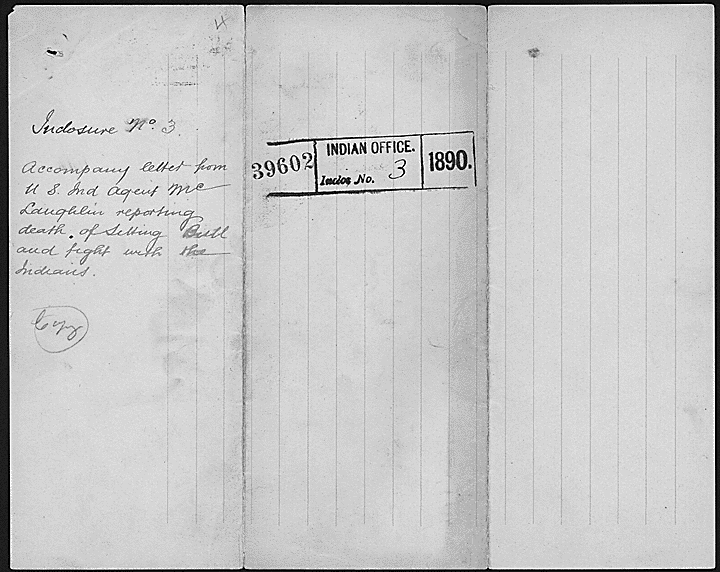 4
Inclosure No. 3.
Accompany letter from
U S. Ind Agent Mc
Laughlin reporting
death. of Sitting Bull
and fight with the
Indians.
Copy
39602
INDIAN OFFICE.
Inclos No. 3
1890.